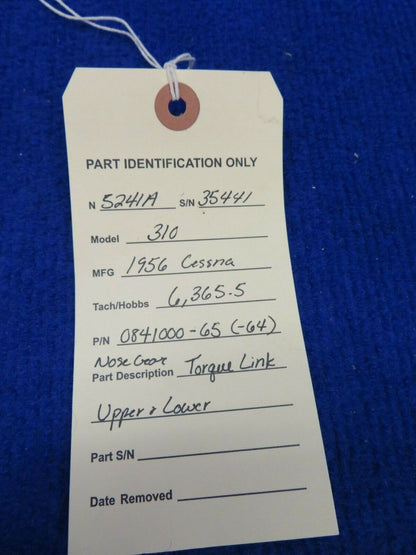 PART IDENTIFICATION ONLY
N 5241A S/N 35441
Model 310
MFG 1956 Cessna
Tach/Hobbs 6,365.5
P/N 0841000-65 (-64)
Nose Gear
Part Description Torque Link
Upper & Lower
Part S/N
Date Removed